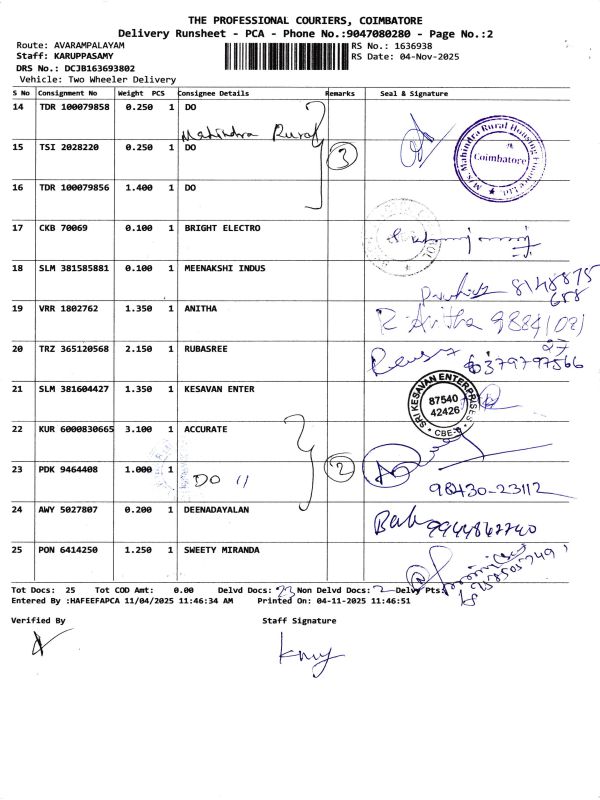 THE PROFESSIONAL COURIERS, COIMBATORE
Delivery Runsheet - PCA - Phone No.:9047080280 - Page No.:2
Route: AVARAMPALAYAM
Staff: KARUPPASAMY
DRS No.: DCJB163693802
Vehicle: Two Wheeler Delivery
RS No.: 1636938
RS Date: 04-Nov-2025
S No Consignment No Weight PCS Consignee Details Remarks Seal & Signature
14 TDR 100079858 0.250 1 DO
Mahindra Rural
15 TSI 2028220 0.250 1 DO 3
M/s Mahindra Rural Housing Finance Ltd. Coimbatore
16 TDR 100079856 1.400 1 DO
17 CKB 70069 0.100 1 BRIGHT ELECTRO
18 SLM 381585881 0.100 1 MEENAKSHI INDUS
8148875
688
19 VRR 1802762 1.350 1 ANITHA R. Anitha 9884102)
27
20 TRZ 365120568 2.150 1 RUBASREE 6379797566
21 SLM 381604427 1.350 1 KESAVAN ENTER
SRI KESAVAN ENTERPRISES 87540 42426 CBE-6
22 KUR 6000830665 3.100 1 ACCURATE
23 PDK 9464408 1.000 1 DO 11 2
98430-23112
24 AWY 5027807 0.200 1 DEENADAYALAN Bab 9944862740
25 PON 6414250 1.250 1 SWEETY MIRANDA
Tot Docs: 25 Tot COD Amt: 0.00 Delvd Docs: 23 Non Delvd Docs: 2 Delvy Pts:
Entered By :HAFEEFAPCA 11/04/2025 11:46:34 AM Printed On: 04-11-2025 11:46:51
Verified By Staff Signature